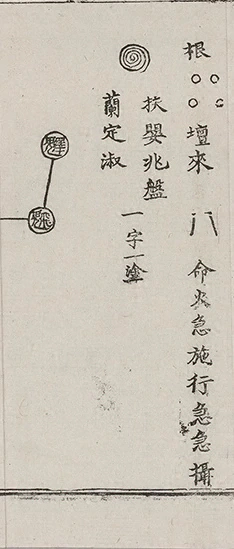 根○○○○壇來 八 命火急施行急急攝
扶嬰兆盤
一字一塗
蘭定淑